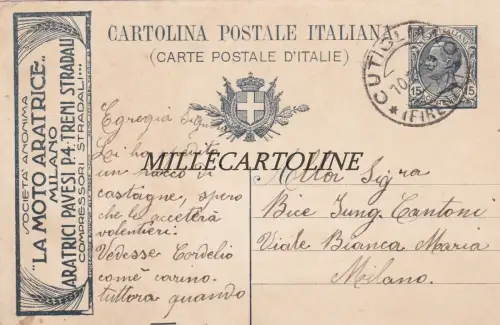 CARTOLINA POSTALE ITALIANA
(CARTE POSTALE D'ITALIE)
SOCIETÀ ANONIMA
"LA MOTO ARATRICE"
MILANO
ARATRICI PAVESI P4·TRENI STRADALI
COMPRESSORI STRADALI
CUTIGLIANO
10
(FIRENZE)
15 15
MILLECARTOLINE
Egregia Sig.
Le ho spedito
un pacco di
castagne, spero
che le accetterà
volentieri.
Vedesse Cordelio
com'è carino.
tuttora quando
Alla Sigra
Bice Jung. Cantoni
Viale Bianca Maria
Milano.